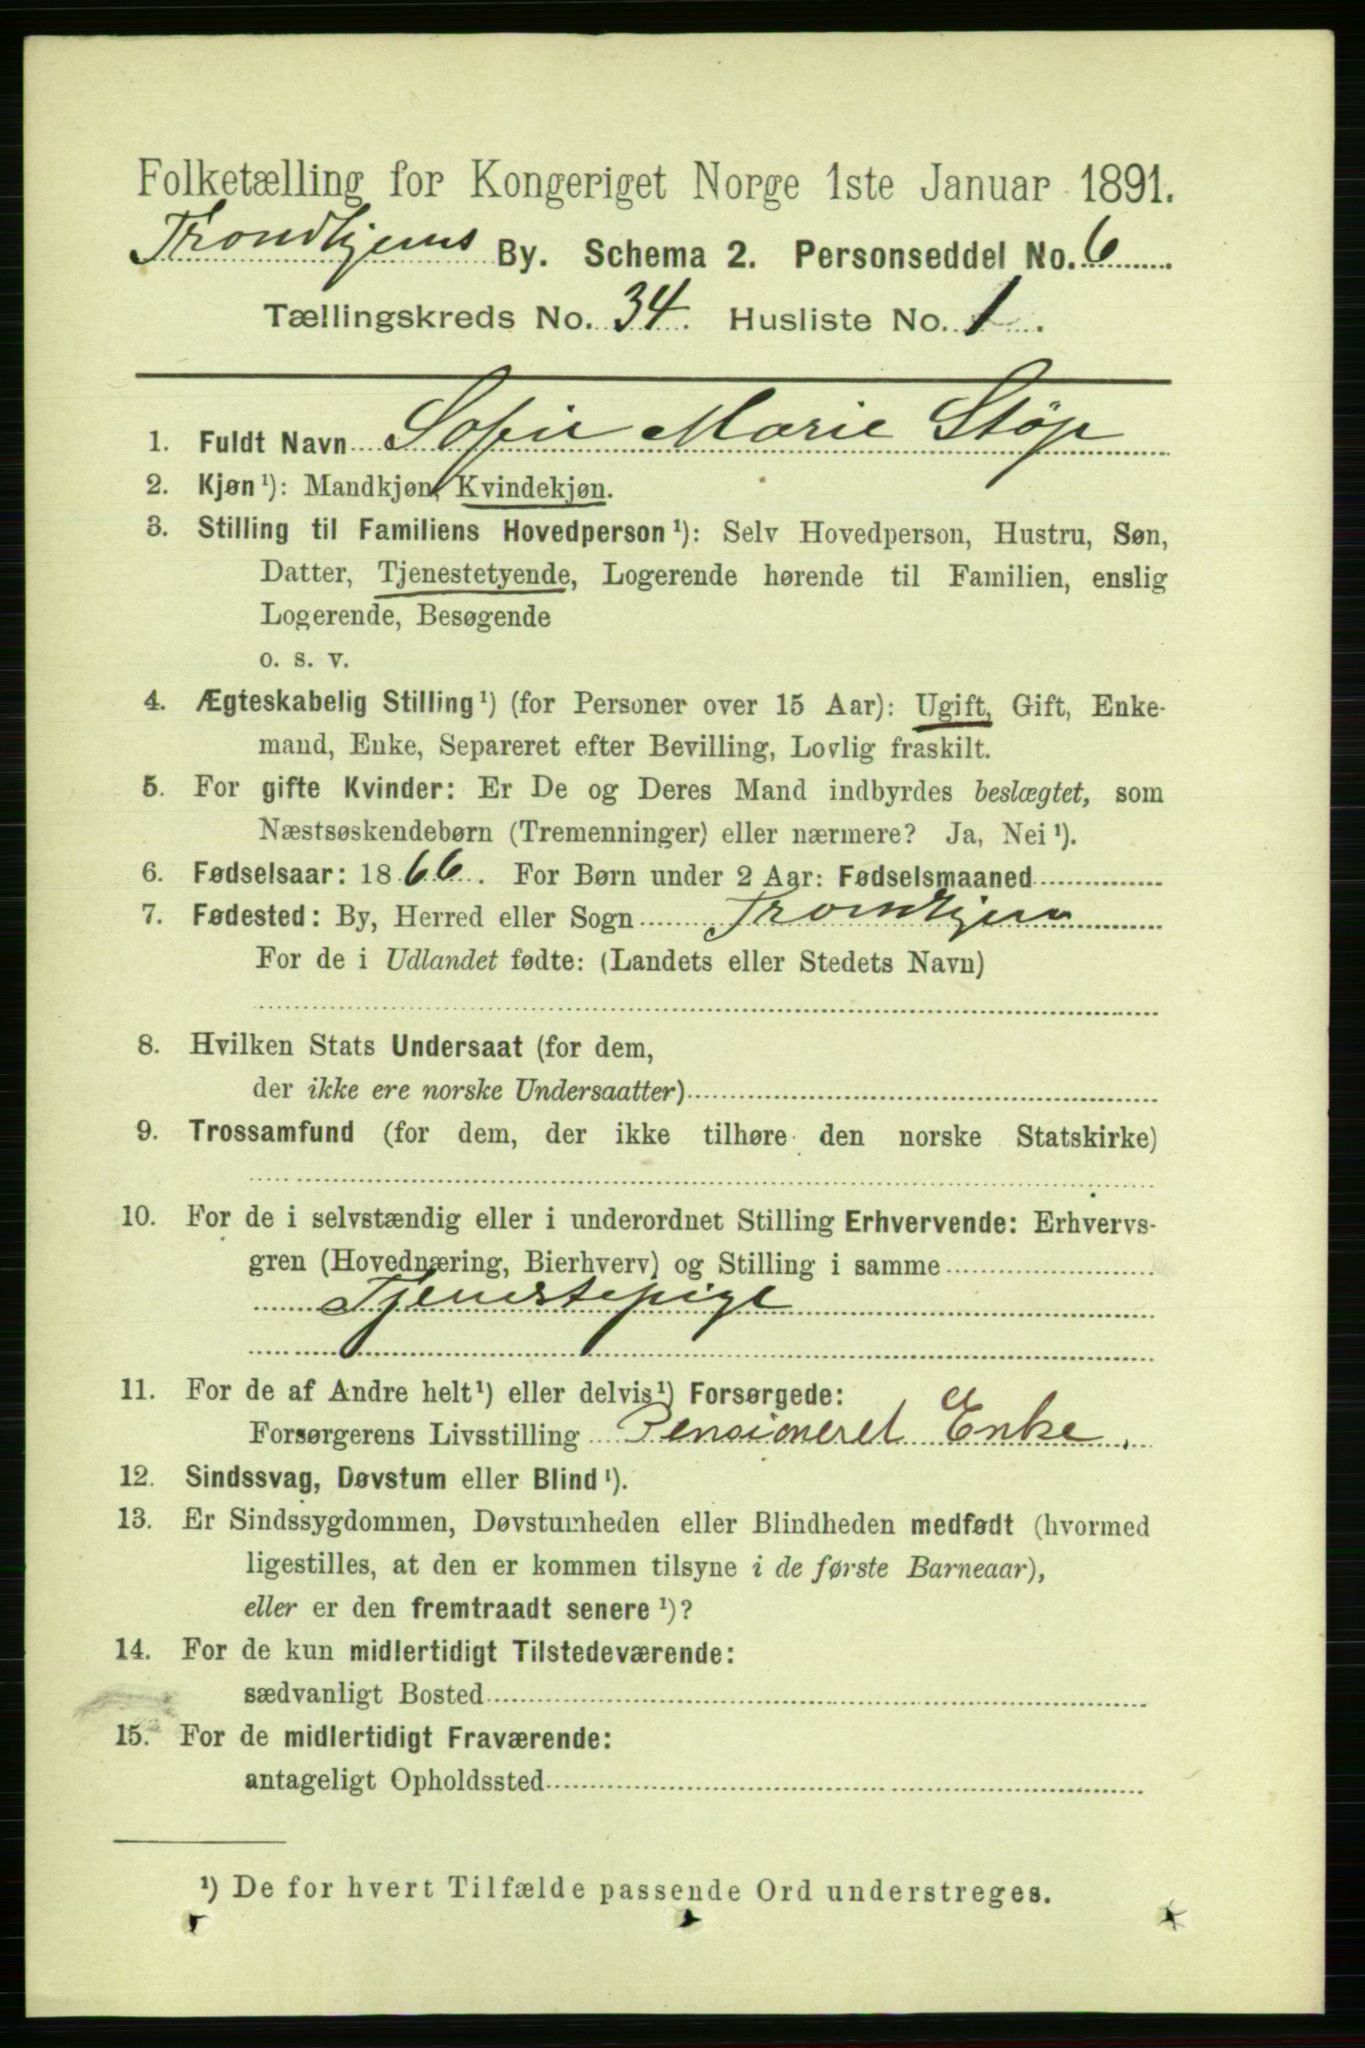 Folketælling for Kongeriget Norge 1ste Januar 1891.
Trondhjems By. Schema 2. Personseddel No. 6
Tællingskreds No. 34. Husliste No. 1.
1. Fuldt Navn Sofie Marie Støp
2. Kjøn¹): Mandkjøn, Kvindekjøn.
3. Stilling til Familiens Hovedperson¹): Selv Hovedperson, Hustru, Søn,
Datter, Tjenestetyende, Logerende hørende til Familien, enslig
Logerende, Besøgende
o. s. v.
4. Ægteskabelig Stilling¹) (for Personer over 15 Aar): Ugift, Gift, Enke-
mand, Enke, Separeret efter Bevilling, Lovlig fraskilt.
5. For gifte Kvinder: Er De og Deres Mand indbyrdes beslægtet, som
Næstsøskendebørn (Tremenninger) eller nærmere? Ja, Nei¹).
6. Fødselsaar: 1866. For Børn under 2 Aar: Fødselsmaaned
7. Fødested: By, Herred eller Sogn Trondhjem
For de i Udlandet fødte: (Landets eller Stedets Navn)
8. Hvilken Stats Undersaat (for dem,
der ikke ere norske Undersaatter)
9. Trossamfund (for dem, der ikke tilhøre den norske Statskirke)
10. For de i selvstændig eller i underordnet Stilling Erhvervende: Erhvervs-
gren (Hovednæring, Bierhverv) og Stilling i samme
Tjenestepige
11. For de af Andre helt¹) eller delvis¹) Forsørgede:
Forsørgerens Livsstilling Pensioneret Enke.
12. Sindssvag, Døvstum eller Blind¹).
13. Er Sindssygdommen, Døvstumheden eller Blindheden medfødt (hvormed
ligestilles, at den er kommen tilsyne i de første Barneaar),
eller er den fremtraadt senere¹)?
14. For de kun midlertidigt Tilstedeværende:
sædvanligt Bosted
15. For de midlertidigt Fraværende:
antageligt Opholdssted
¹) De for hvert Tilfælde passende Ord understreges.